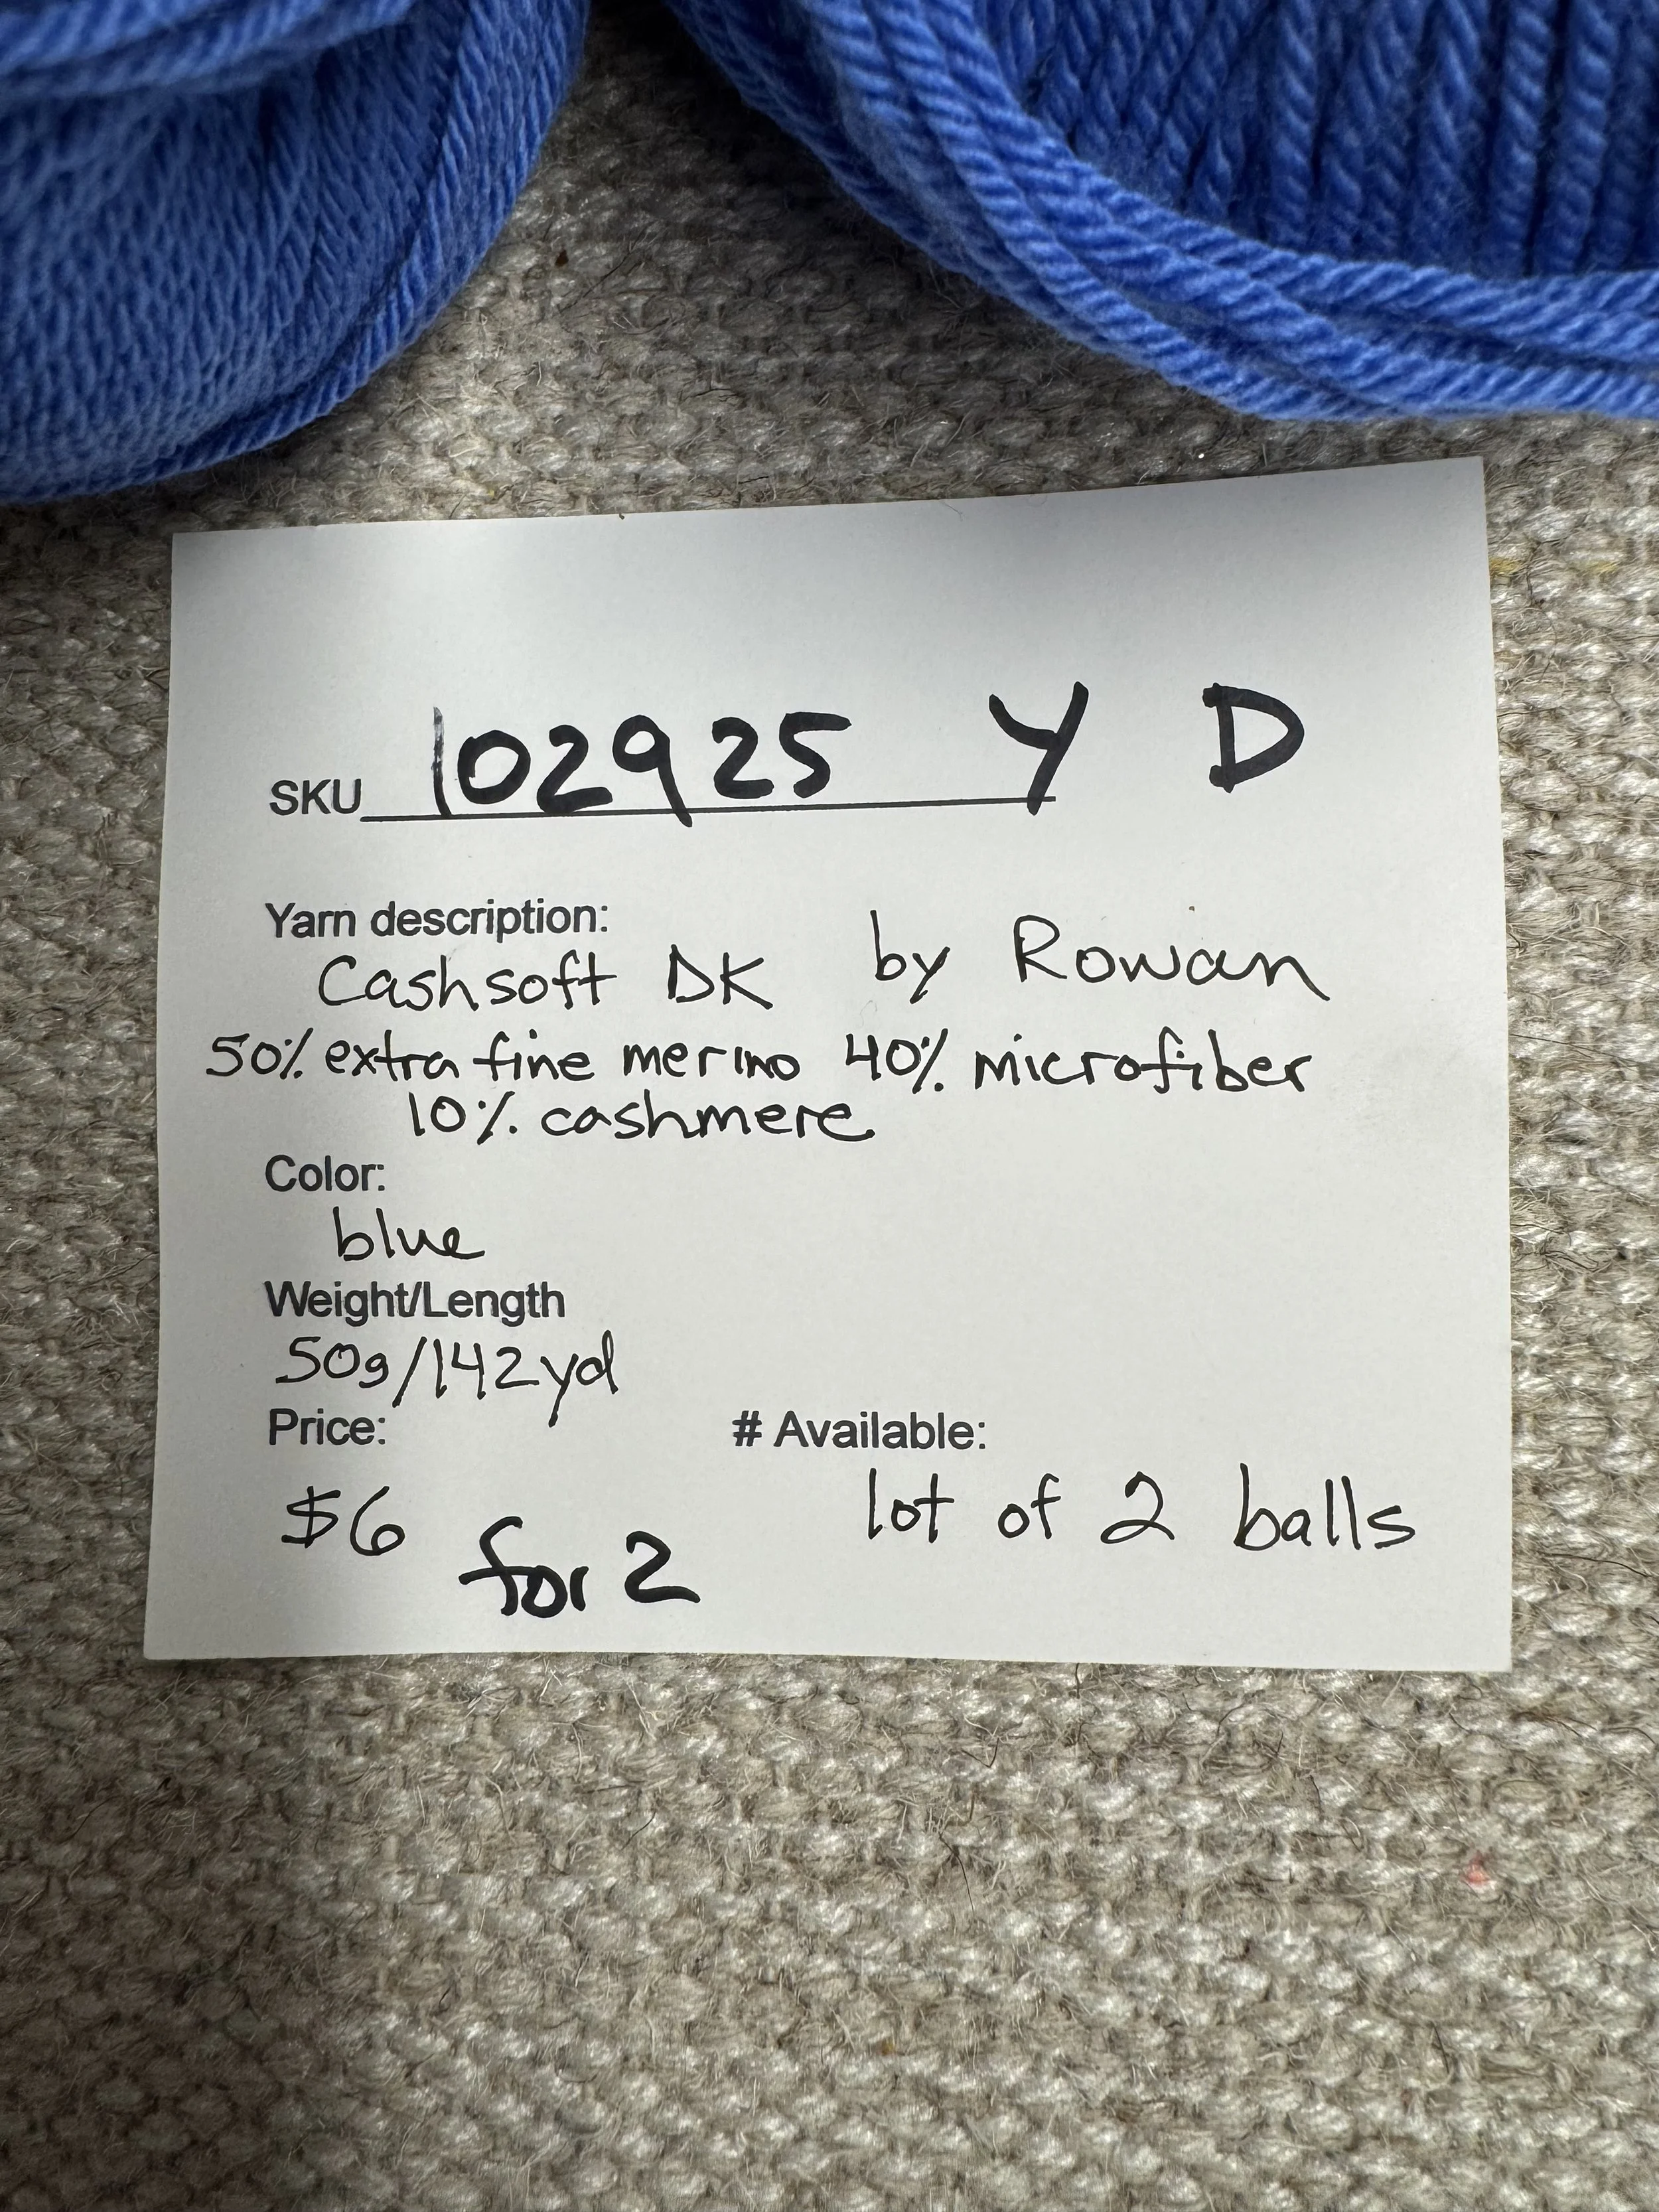 SKU 102925 Y D
Yarn description:
Cashsoft DK by Rowan
50% extra fine merino 40% microfiber
10% cashmere
Color:
blue
Weight/Length
50g/142yd
Price: # Available:
$6 for 2 lot of 2 balls